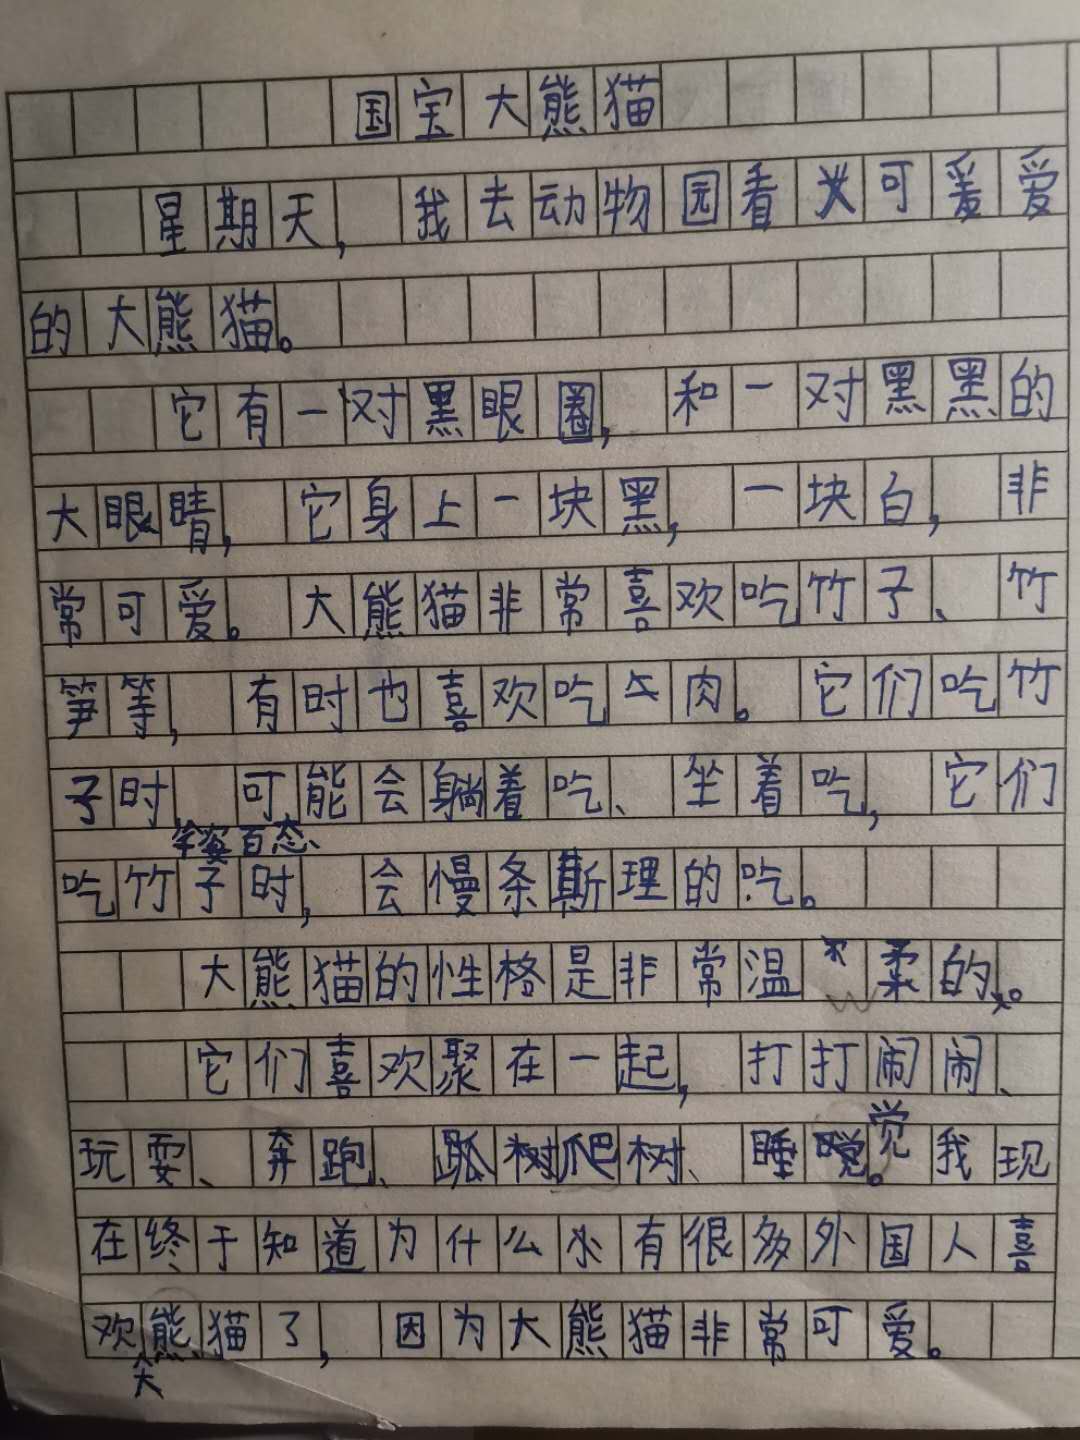 国宝大熊猫
星期天，我去动物园看可爱
的大熊猫。
它有一对黑眼圈，和一对黑黑的
大眼睛，它身上一块黑，一块白，非
常可爱。大熊猫非常喜欢吃竹子、竹
笋等，有时也喜欢吃牛肉。它们吃竹
子时，可能会躺着吃、坐着吃，它们
姿百态、
吃竹子时，会慢条斯理的吃。
大熊猫的性格是非常温柔的。
它们喜欢聚在一起，打打闹闹、
玩耍、奔跑、爬树、睡觉。我现
在终于知道为什么有很多外国人喜
欢熊猫了，因为大熊猫非常可爱。
大